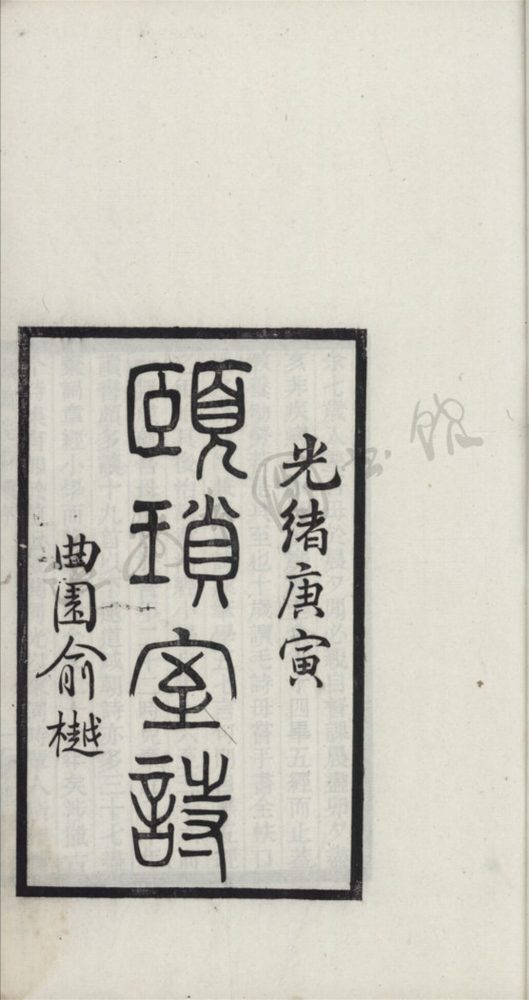 光緒庚寅
頤瑣室詩
曲園俞樾